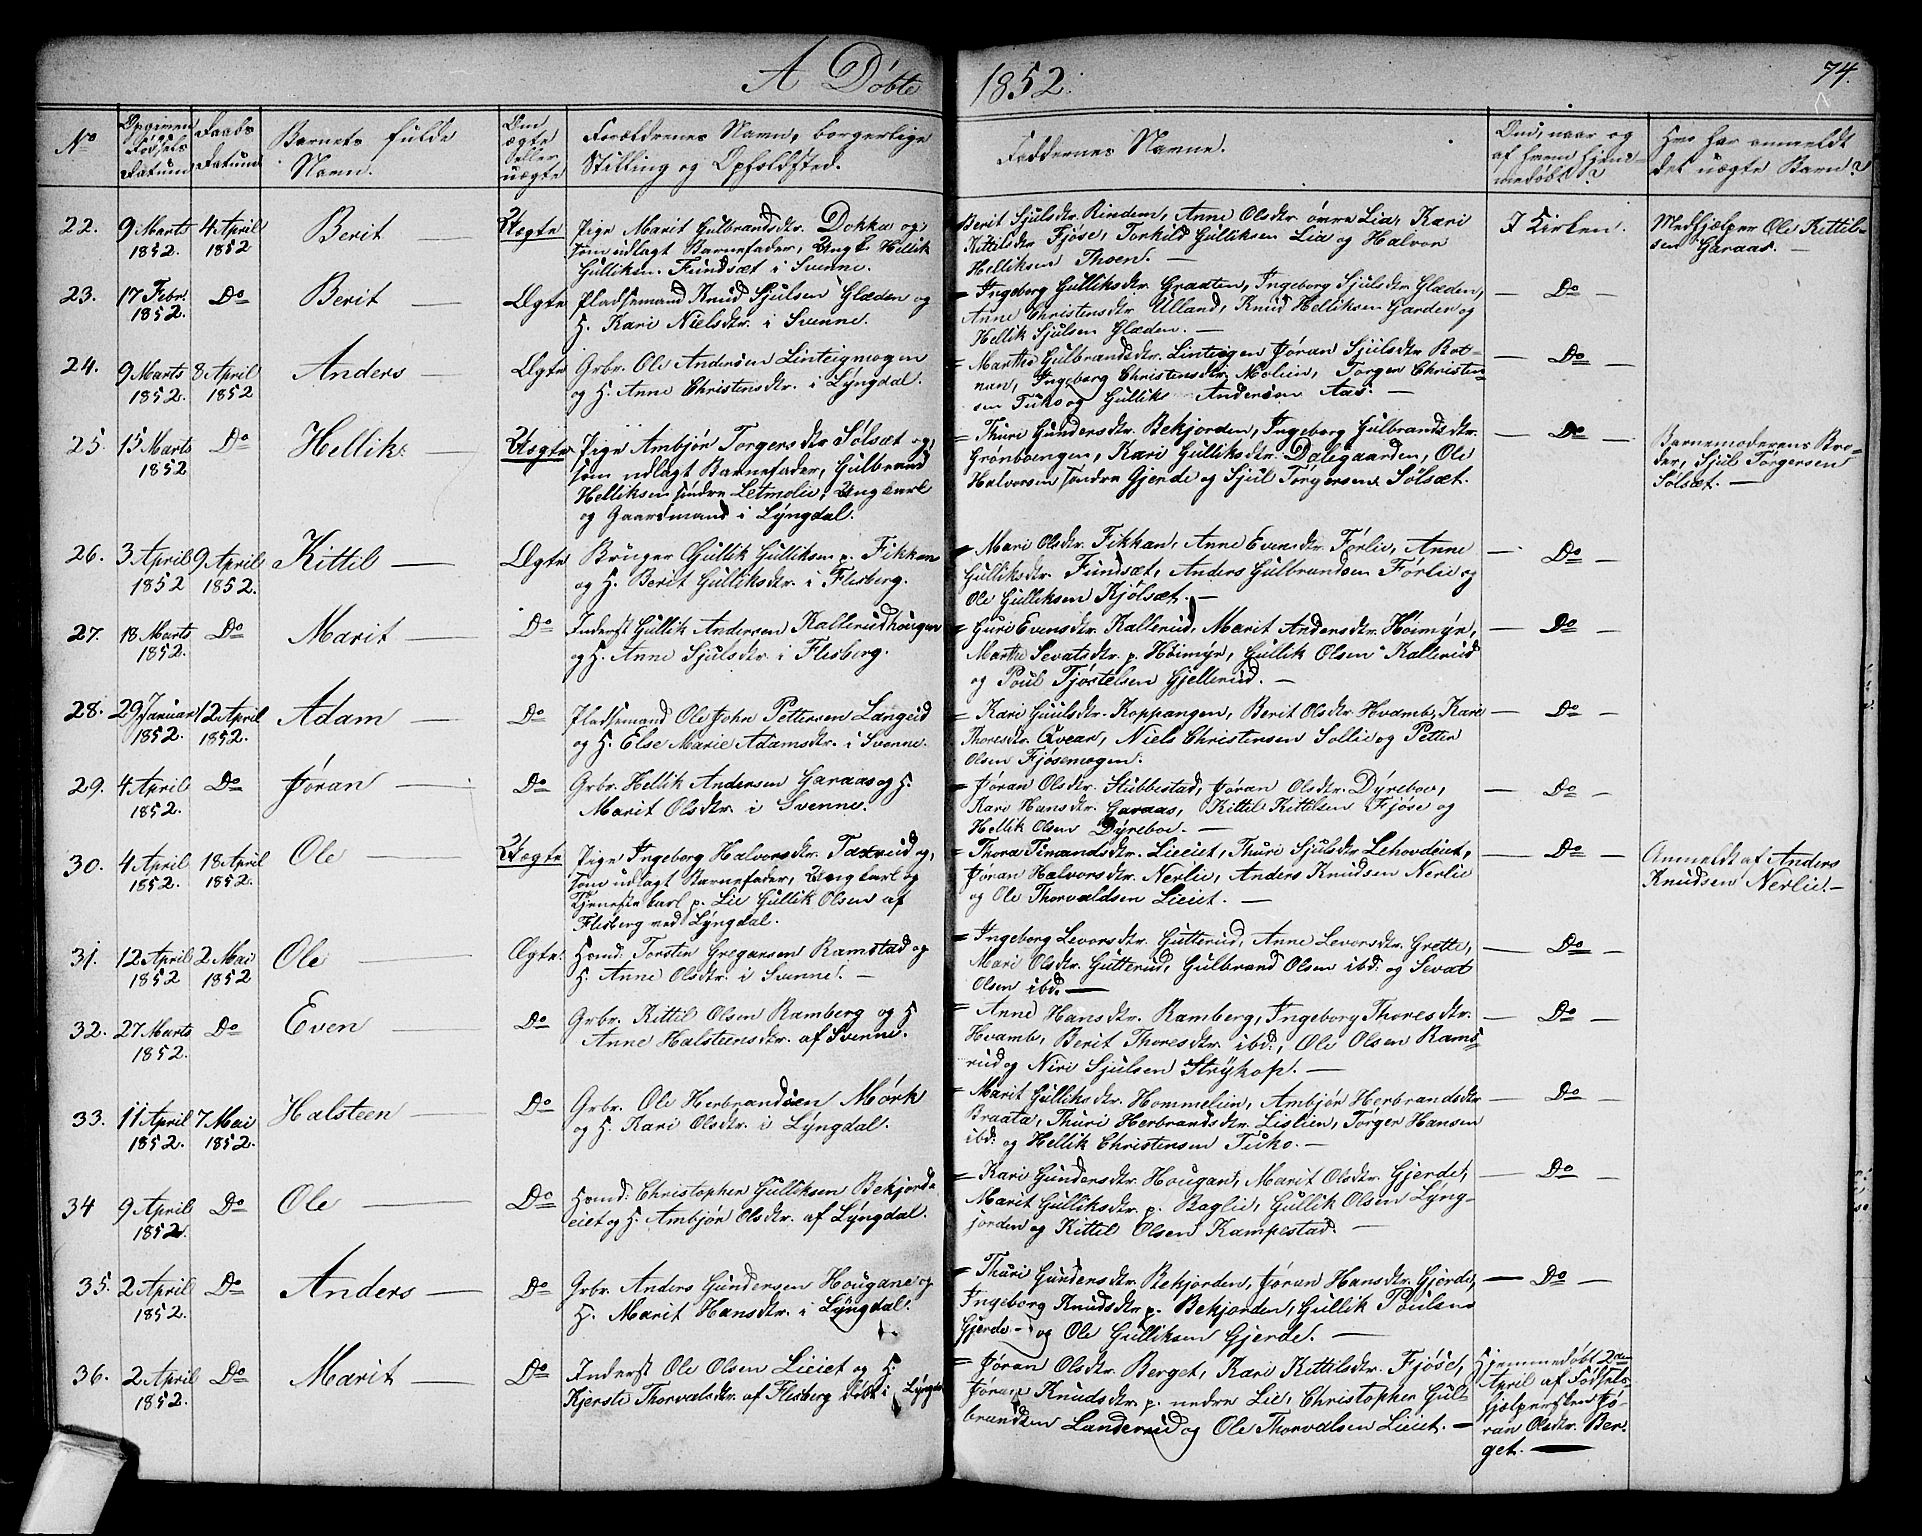 A Døbte
1852.
74.
No
Opgiven Fødsels Datum
Daabs Datum
Barnets fulde Navn.
Om ægte eller uægte
Forældrenes Navn, borgerlige Stilling og Opholdsted.
Faddernes Navne.
Om, naar og af hvem hjemmedøbt?
Hvo har anmeldt det uægte Barn?
22.
9 Marts 1852.
4 April 1852
Berit
Uægte
Pige Marit Gulbrandsdtr. Dokka og
som udlagt Barnefader, Ungk. Hellik
Gulliksen Fundsæt i Svenne.
Berit Sjulsdtr. Rindem, Anne Olsdtr. øvre Lia, Kari
Kittilsdtr Fjøse, Torkild Gulliksen Lia og Halvor
Helliksen Thoen. —
I Kirken.
Medhjælper Ole Kittil-
sen Garaas. —
23.
17 Febr. 1852.
Do
Berit —
Ægte
Pladsemand Knud Sjulsen Glæden og
H. Kari Nielsdtr. i Svenne.
= Ingeborg Gulliksdtr. Graaten, Ingeborg Sjulsdtr. Glæden,
Anne Christensdtr Ulland, Knud Helliksen Garden og
Hellik Sjulsen Glæden. —
— Do —
24.
9 Marts 1852.
8 April 1852
Anders —
Ægte
Grbr. Ole Andersen Linteigmogen
og H. Anne Christensdtr. i Lÿngdal.
= Marthe Gulbrandsdtr. Linteigen Jøran Sjulsdtr Bot-
nan, Ingeborg Christensdtr. Molien, Torger Christen-
sen Tuko og Gullik Andersen Aas. —
— Do —
25.
15 Marts 1852
Do
Hellik
Uægte
Pige Ambjør Torgersdtr Sølsæt og,
som udlagt Barnefader, Gulbrand
Helliksen søndre Letmolie, Ungkarl
og Gaardmand i Lÿngdal.
= Thuri Gundersdtr. Bekjorden, Ingeborg Gulbrandsdtr.
Grønboengen, Kari Gulliksdtr. Dalegaarden, Ole
Halvorsen søndre Gjerde og Sjul Torgersen Sølsæt.
— Do —
Barnemoderens Bro-
der, Sjul Torgersen
Sølsæt. —
26.
3 April 1852
9 April 1852.
Kittil —
Ægte
Bruger Gullik Gulliksen p. Fikkan
og H. Berit Gulliksdtr. i Flesberg.
= Mari Olsdtr. Fikkan, Anne Evensdtr. Førlie, Anne
Gulliksdtr. Fundsæt, Anders Gulbrandsen Førlie og
Ole Gulliksen Kjølsæt. —
— Do —
27.
18 Marts 1852.
Do
Marit —
Do
Inderst Gullik Andersen Kallerudhougen
og H. Anne Sjulsdtr. i Flesberg.
= Guri Evensdtr. Kallerud, Marit Andersdtr. Høimÿr,
Marthe Sevatsdtr. p. Høimÿr, Gullik Olsen Kallerud
og Poul Tjøstelsen Gjellerud. —
— Do —
28.
29 Januar 1852.
12 April 1852.
Adam —
Do
Pladsemand Ole John Pettersen Langeid
og H. Else Marie Adamsdtr. i Svenne.
= Kari Guulsdtr. Koppangen, Berit Olsdtr. Hvamb, Kari
Thoresdtr. Qvear, Niels Christensen Sollie og Petter
Olsen Fjøsemogen.
— Do —
29.
4 April 1852.
Do
Jøran —
Do
Grbr. Hellik Andersen Garaas og H.
Marit Olsdtr. i Svenne.
= Jøran Olsdtr. Stubbestad, Jøran Olsdtr. Dÿreboe,
Kari Hansdtr. Garaas, Kittil Kittilsen Fjøse og
Hellik Olsen Dÿreboe. —
— Do —
30.
4 April 1852.
18 April 1852.
Ole —
Uægte
Pige Ingeborg Halvorsdtr. Taxrud og,
som udlagt Barnefader, Ungkarl og
Tjenestekarl p. Lie Gullik Olsen af
Flesberg ved Lÿngdal.
= Thora Timandsdtr. Lieeiet, Thuri Sjulsdtr. Lehovdeiet,
Jøran Halvorsdtr. Nerlie, Anders Knudsen Nerlie
og Ole Thorvaldsen Lieiet. —
— Do —
Anmeldt af Anders
Knudsen Nerlie. —
31.
12 April 1852
2 Mai 1852
Ole —
Ægte.
Hsmd. Torsten Gregarsen Ramstad og
H. Anne Olsdtr. i Svenne. —
= Ingeborg Levorsdtr. Gutterud, Anne Levorsdtr. Grette,
Mari Olsdtr. Gutterud, Gulbrand Olsen ibd. og Sevat
Olsen ibd. —
— Do —
32.
27 Marts 1852.
Do
Even —
Do
Grbr. Kittil Olsen Ramberg og H
Anne Halsteensdtr. af Svenne.
= Anne Hansdtr. Ramberg, Ingeborg Thoresdtr.
Hvamb, Berit Thoresdtr. ibd., Ole Olsen Rams-
rud og Niri Sjulsen Strÿkop. —
— Do —
33.
11 April 1852.
7 Mai 1852.
Halsteen —
Do
Grbr. Ole Herbrandsen Mørk
og H. Kari Olsdtr. i Lÿngdal.
= Marit Gulliksdtr. Hommelien, Ambjør Herbrandsdtr
Braata, Thuri Herbrandsdtr. Lislien, Torger Hansen
ibd. og Hellik Christensen Tuko. —
— Do —
34
9 April 1852.
Do
Ole —
Do
Hsmd. Christopher Gulliksen Bekjord-
eiet og H. Ambjør Olsdtr. af Lÿngdal.
= Kari Gundersdtr. Hougan, Marit Olsdtr. Gjerde,
Marit Gulliksdtr. p. Baglie, Gullik Olsen Lÿng-
jorden og Kittil Olsen Kampestad. —
— Do —
35.
2 April 1852.
Do
Anders —
Do
Grbr. Anders Gundersen Hougane og
H. Marit Hansdtr. i Lÿngdal.
= Thuri Gundersdtr. Bekjorden, Jøran Hansdtr. Gjerde,
Ingeborg Knudsdtr. p. Bekjorden, Gullik Poulsen
Gjerde — og Ole Gulliksen Gjerde. —
— Do —
36.
2 April 1852.
Do
Marit —
Do
Inderst Ole Olsen Lieiet og H.
Kjersti Thorvalsdtr. af Flesberg Døbt i Lÿngdal
= Jøran Olsdtr. Berget, Kari Kittilsdtr. Fjøse,
Jøran Knudsdtr. p. nedre Lie, Christopher Gul-
brandsen Landerud og Ole Thorvalsen Lieiet. —
Hjemmedøbt 2den
April af Fødsels-
hjælpersken Jø-
ran Olsdtr. Ber-
get. —